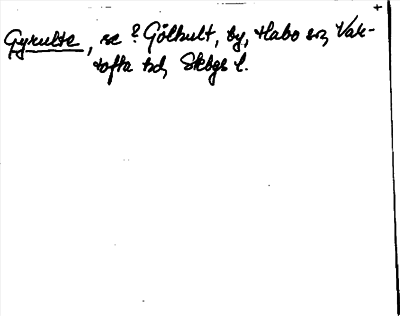 +
Gyrulte, se ? Gölhult, by, Habo sn, Vak-
tofta hd, Skbgs l.